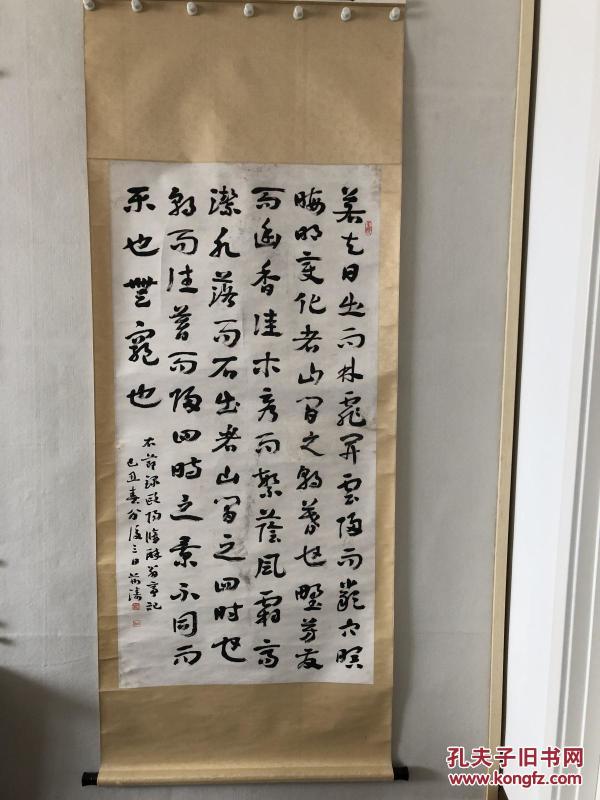 若夫日出而林霏開雲歸而巖穴暝
晦明變化者山間之朝暮也野芳發
而幽香佳木秀而繁蔭風霜高
潔水落而石出者山間之四時也
朝而往暮而歸四時之景不同而
樂也無窮也
右節錄歐陽脩醉翁亭記
己丑春分後三日
孔夫子旧书网
www.kongfz.com